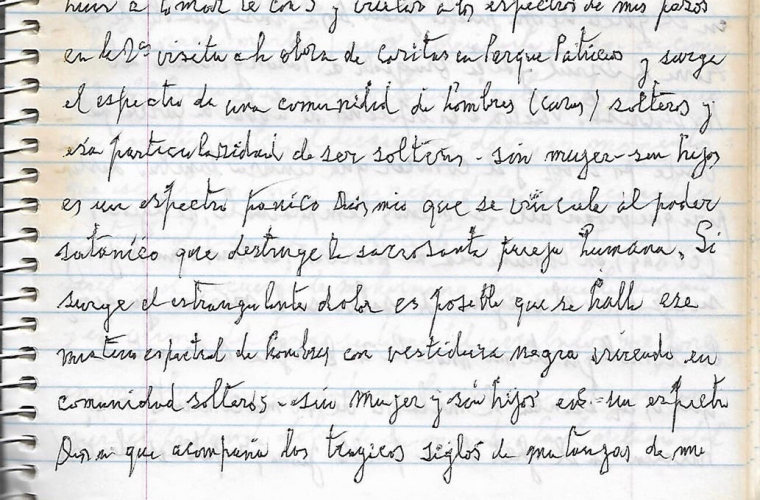 a tomar te con s y vuelvo a los espectros de mis pasos
en la 2ª visita a la obra de caritas en Parque Patricios y surge
el espectro de una comunidad de hombres (curas) solteros y
esa particularidad de ser solteros - sin mujer - sin hijos
es un espectro panico Dios mio que se vincula al poder
satanico que destruye la sacrosanta pareja humana. Si
surge el estrangulante dolor es posible que se halle ese
misterio espectral de hombres con vestidura negra viviendo en
comunidad solteros - sin mujer y sin hijos es un espectro
que acompaña los tragicos siglos de matanzas de mi